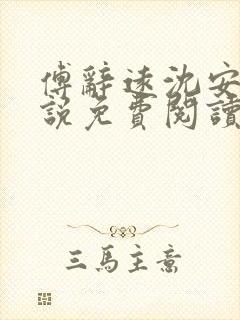 傅辭遠沈安
說免費閱讀
三馬主意